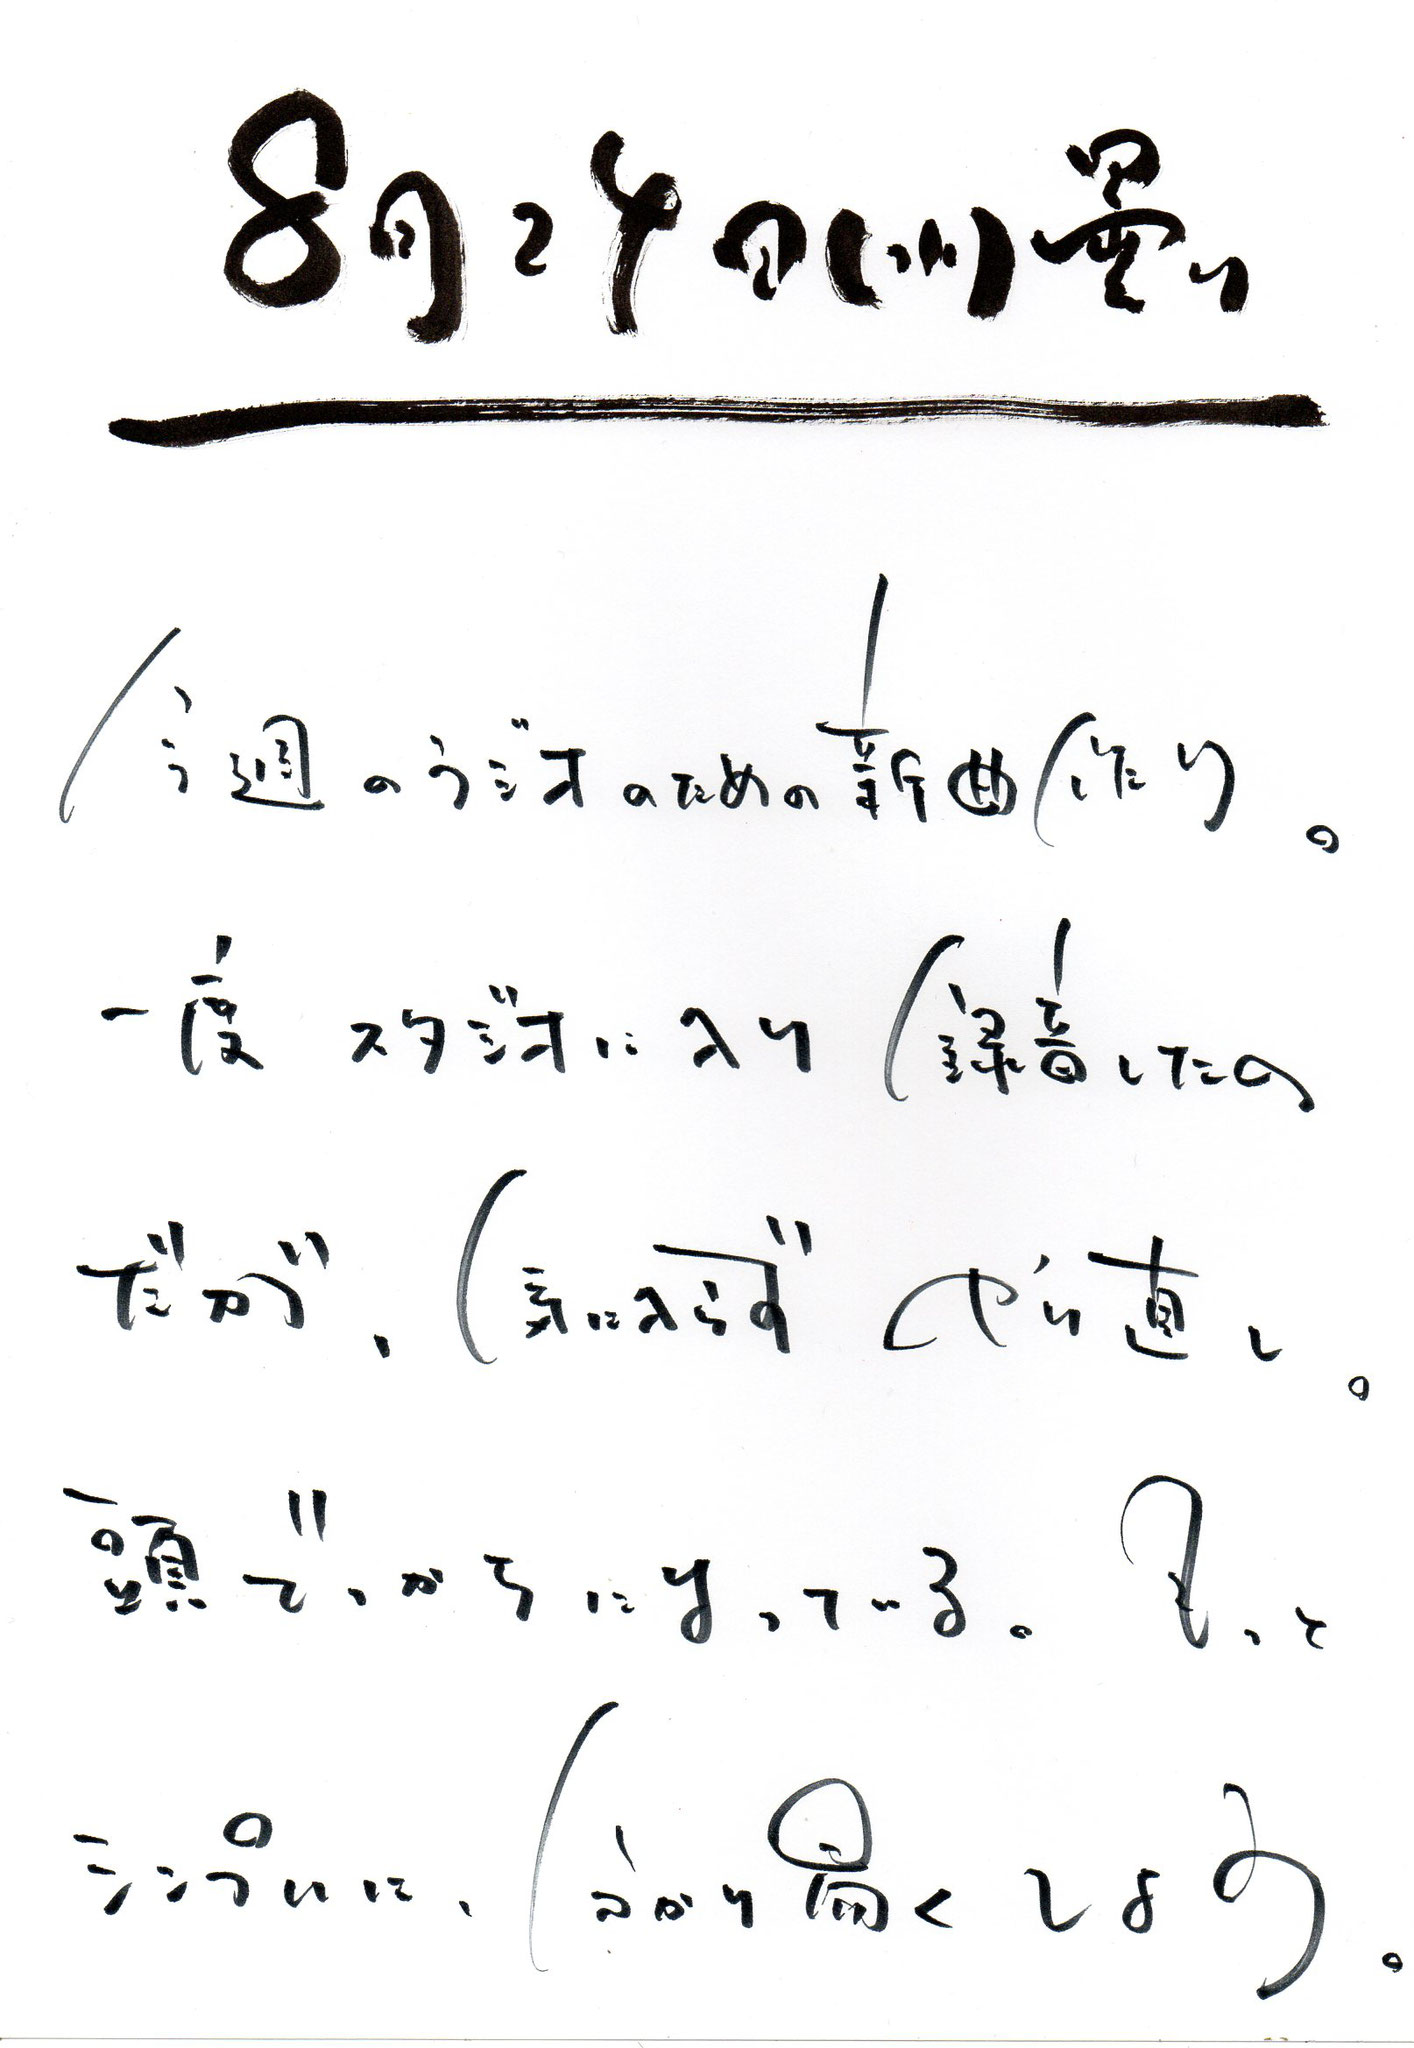 8月24日(水)曇り
今週のラジオのための新曲作り。
一度 スタジオに入り 録音したの
だが、気に入らず やり直し。
頭でっかちになっている。もっと
シンプルに、わかり易くしよう。